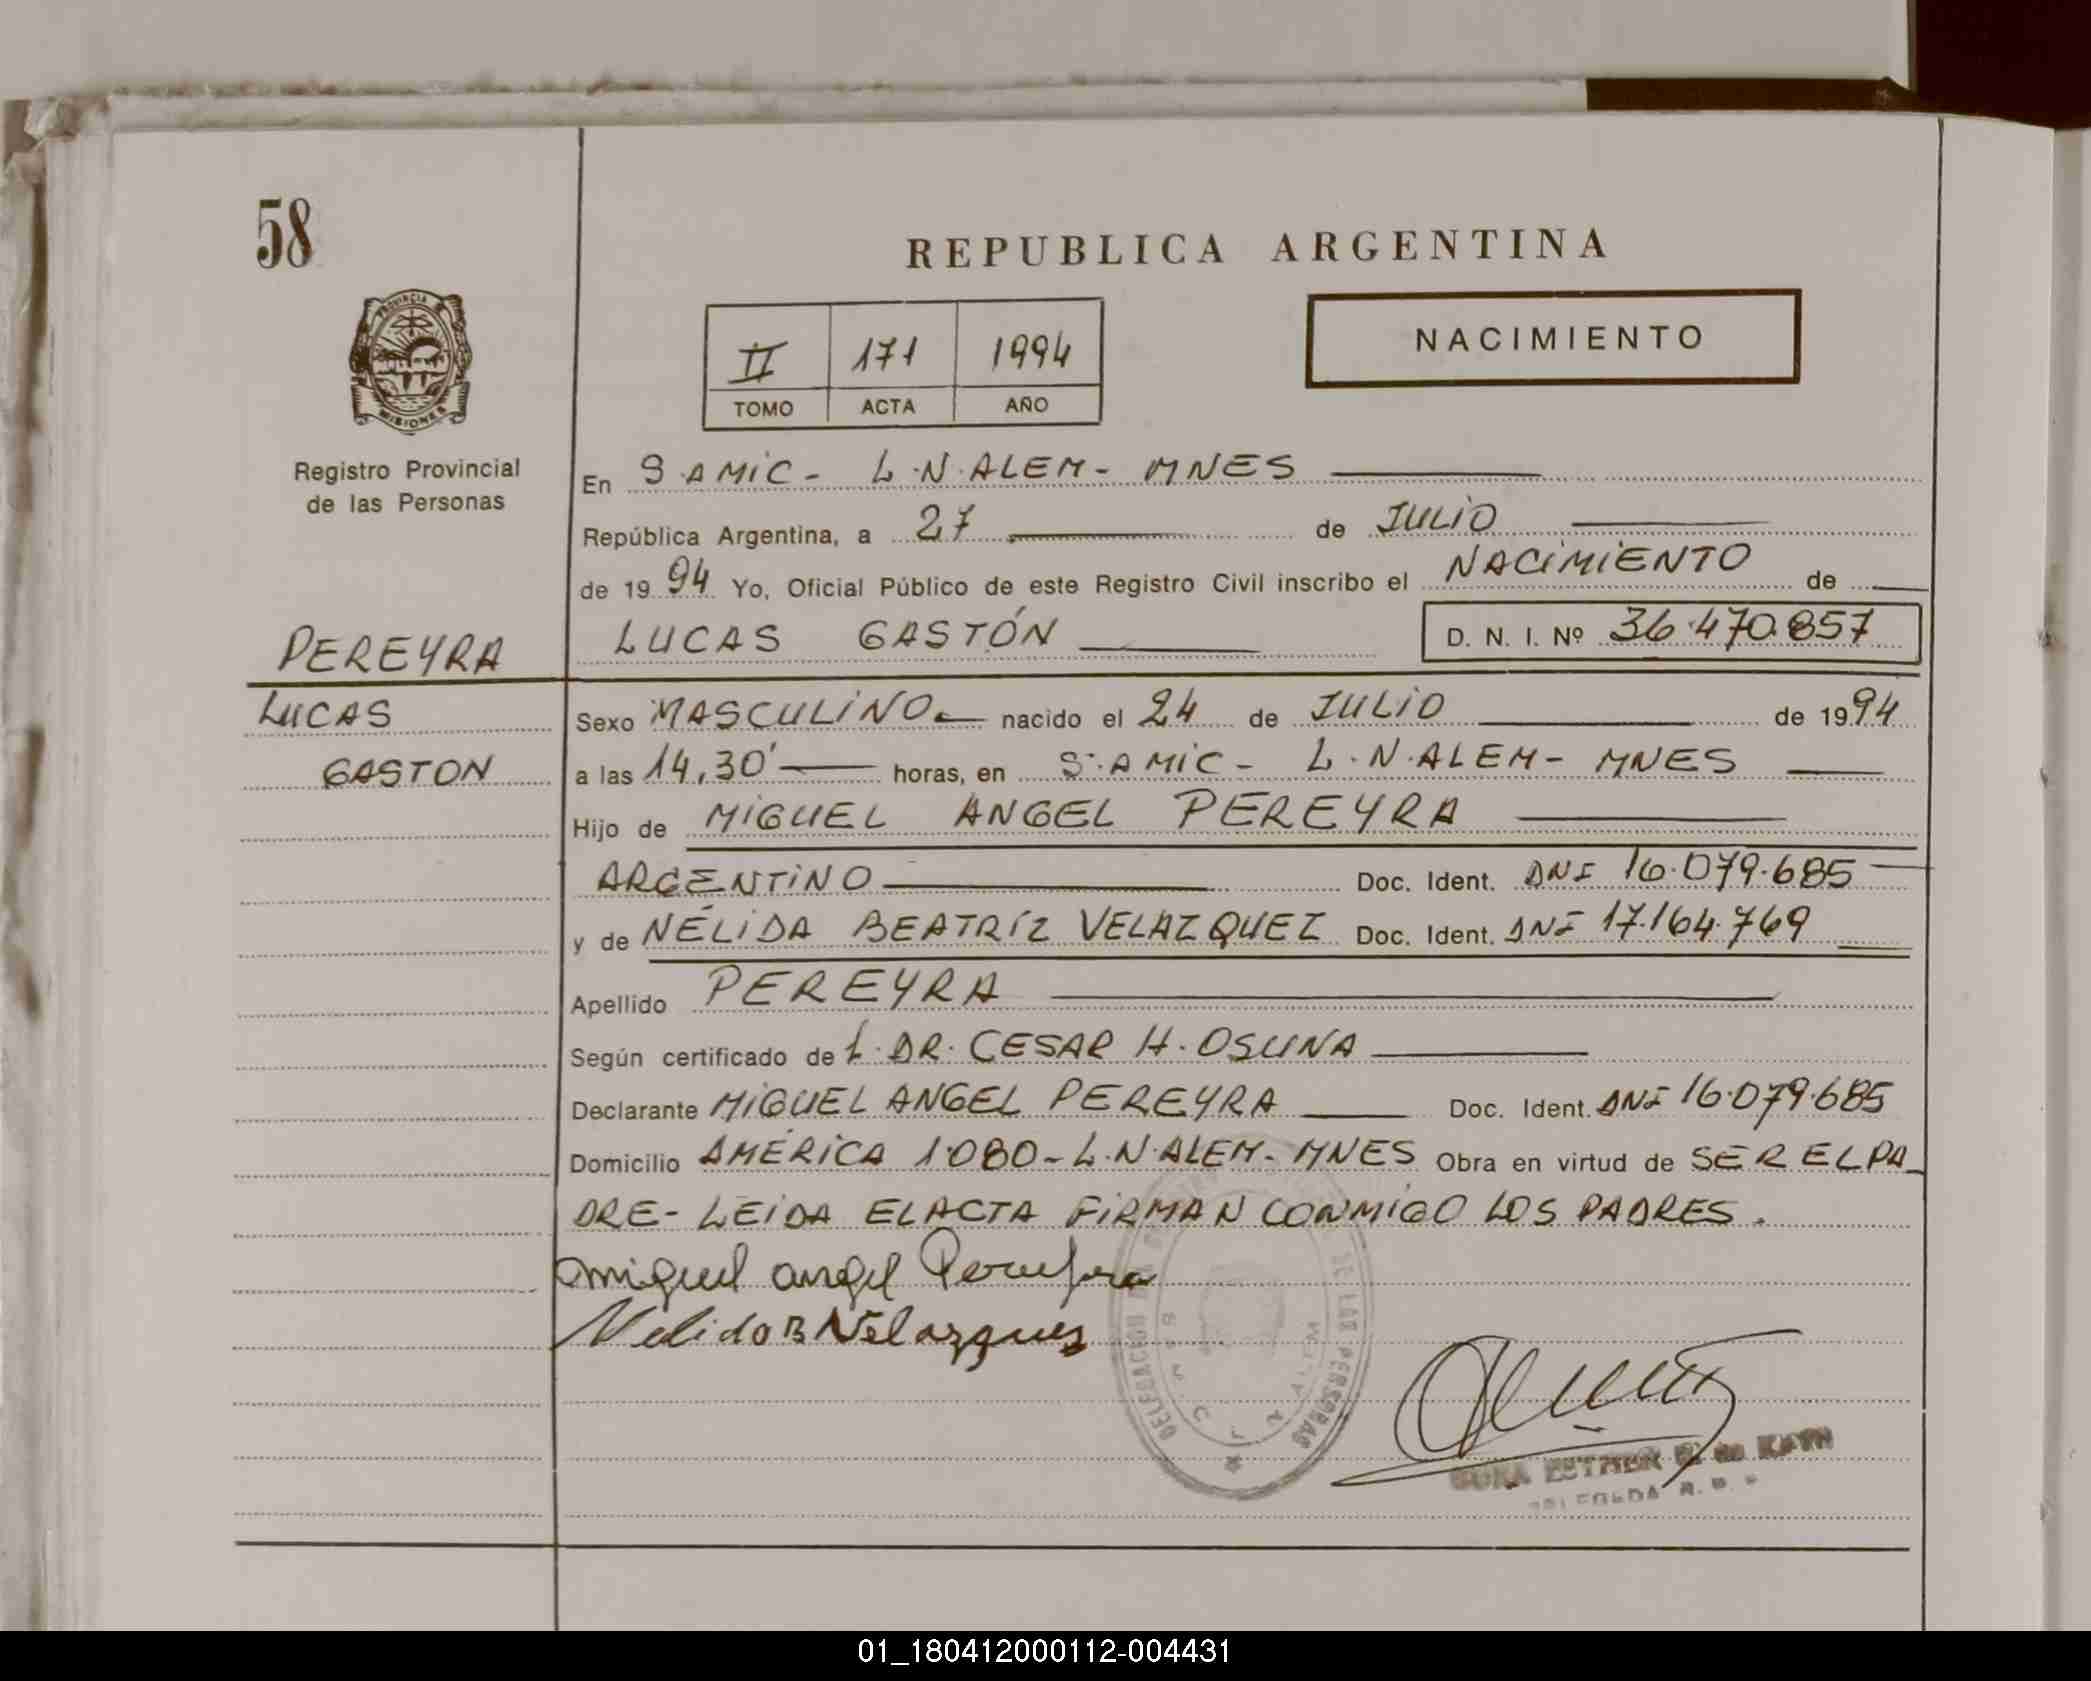 58
REPUBLICA ARGENTINA
PROVINCIA
MISIONES
II 171 1994
TOMO ACTA AÑO
NACIMIENTO
Registro Provincial
de las Personas
En S.AMIC- L.N.ALEM- MNES
República Argentina, a 27 de JULIO
de 1994 Yo, Oficial Público de este Registro Civil inscribo el NACIMIENTO de
PEREYRA LUCAS GASTÓN D. N. I. Nº 36.470.857
LUCAS Sexo MASCULINO nacido el 24 de JULIO de 1994
GASTON a las 14,30' horas, en S.AMIC- L.N.ALEM- MNES
Hijo de MIGUEL ANGEL PEREYRA
ARGENTINO Doc. Ident. DNI 16.079.685
y de NÉLIDA BEATRÍZ VELAZQUEZ Doc. Ident. DNI 17.164.769
Apellido PEREYRA
Según certificado de L. DR. CESAR H. OSUNA
Declarante MIGUEL ANGEL PEREYRA Doc. Ident. DNI 16.079.685
Domicilio AMÉRICA 1.080- L.N.ALEM- MNES Obra en virtud de SER EL PA
DRE- LEIDA EL ACTA FIRMAN CONMIGO LOS PADRES.
miguel angel Pereyra
Nelida B Velazquez
DELEGACION DE LAS PERSONAS
ALEM
ESTHER de
DELEGADA R. P.
01_180412000112-004431